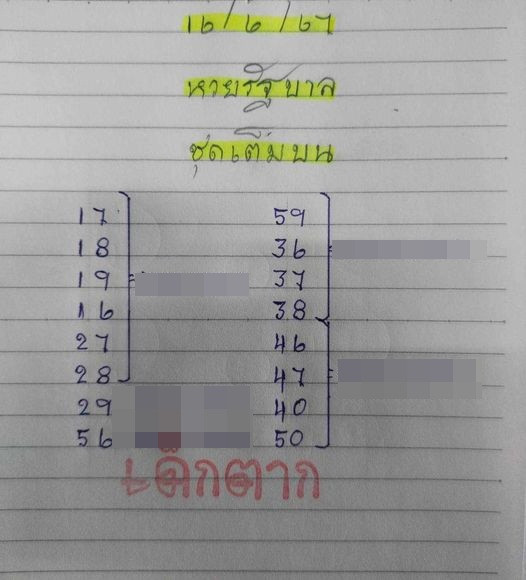 16/6/67
หวยรัฐบาล
ชุดเต็มบน
17 59
18 36
19 37
16 38
27 46
28 47
29 40
56 50